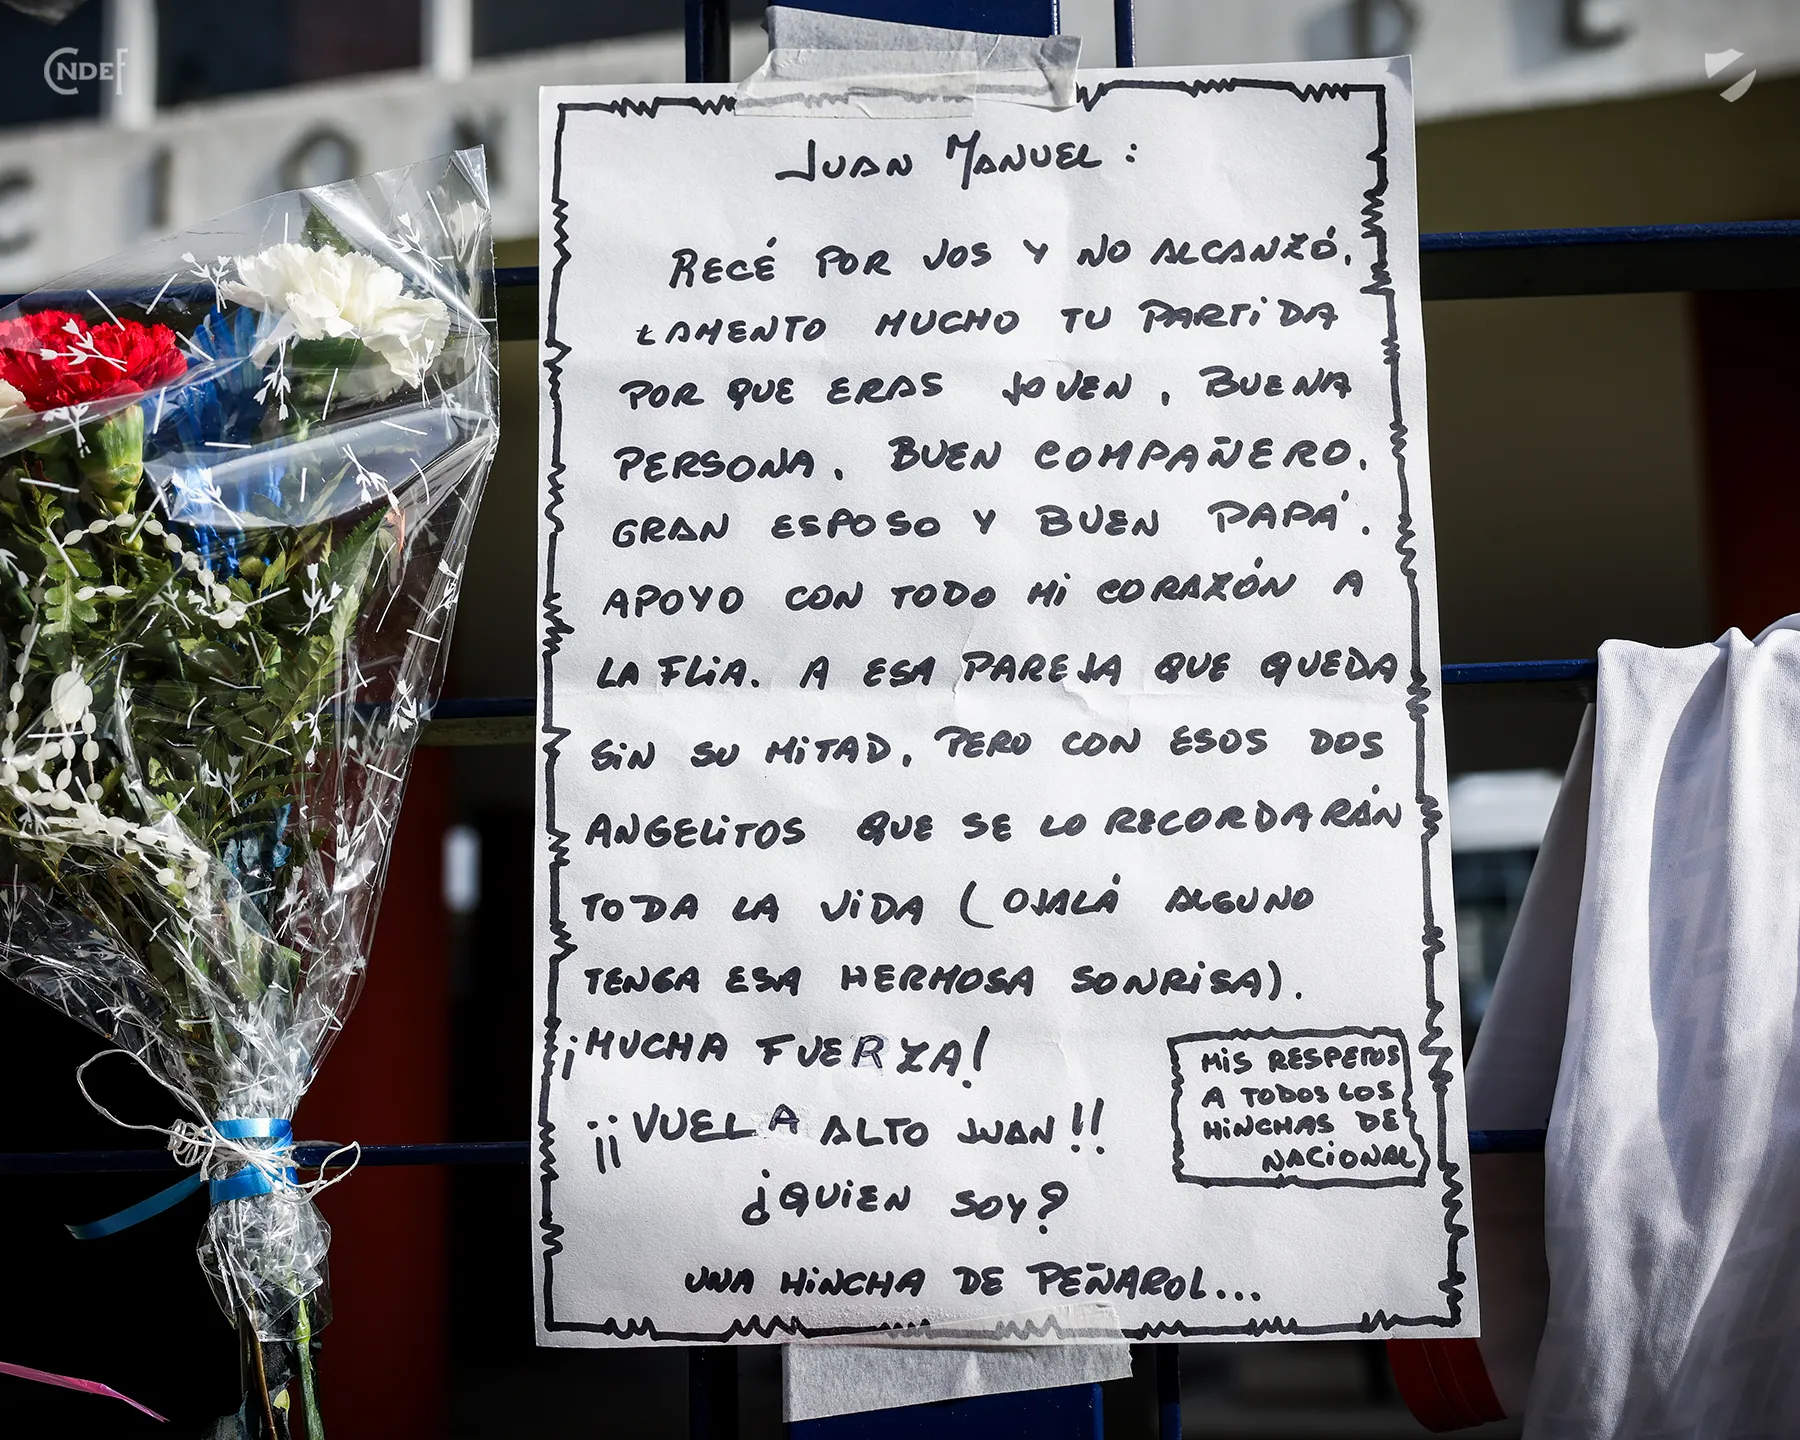 CNDEF
CION
DE
JUAN MANUEL:
RECÉ POR VOS Y NO ALCANZÓ.
LAMENTO MUCHO TU PARTIDA
POR QUE ERAS JOVEN, BUENA
PERSONA, BUEN COMPAÑERO,
GRAN ESPOSO Y BUEN PAPÁ.
APOYO CON TODO MI CORAZÓN A
LA FLIA. A ESA PAREJA QUE QUEDA
SIN SU MITAD, PERO CON ESOS DOS
ANGELITOS QUE SE LO RECORDARÁN
TODA LA VIDA (OJALÁ ALGUNO
TENGA ESA HERMOSA SONRISA).
¡MUCHA FUERZA!
¡¡VUELA ALTO JUAN!!
¿QUIEN SOY?
UNA HINCHA DE PEÑAROL...
MIS RESPETOS
A TODOS LOS
HINCHAS DE
NACIONAL